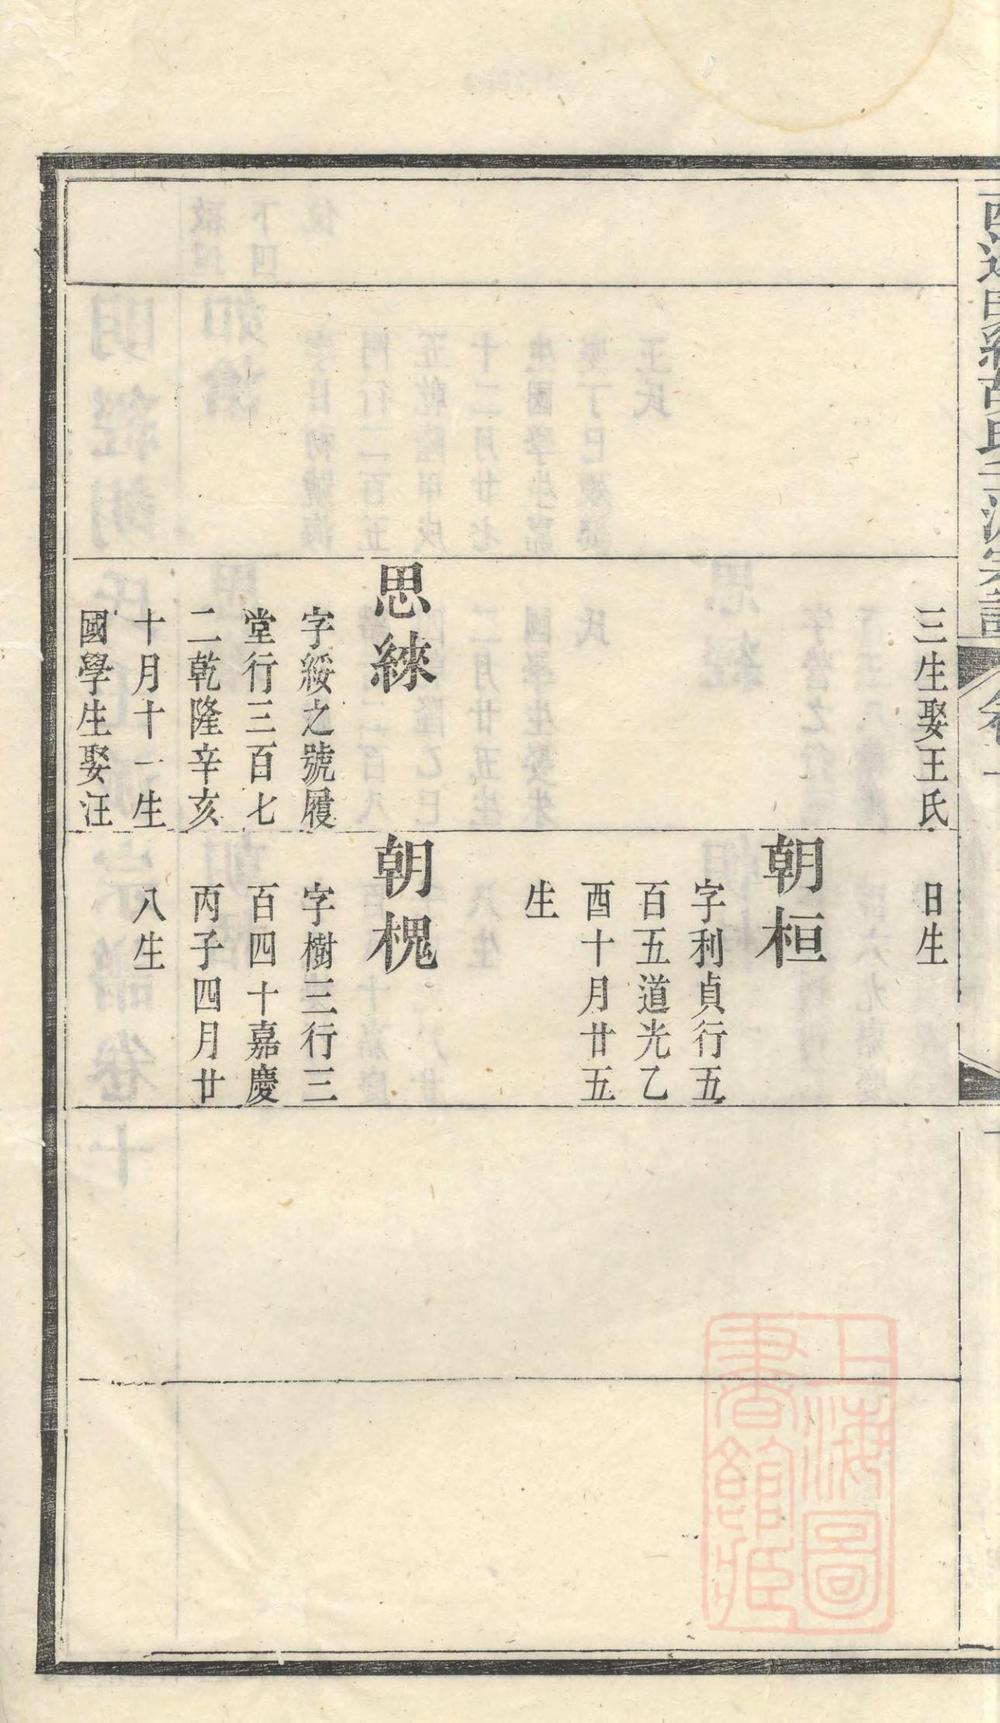 三生娶王氏
思綝
字綏之號履
堂行三百七
二乾隆辛亥
十月十一生
國學生娶汪
日生
朝桓
字利貞行五
百五道光乙
酉十月廿五
生
朝槐
字樹三行三
百四十嘉慶
丙子四月廿
八生
上海圖
書館藏